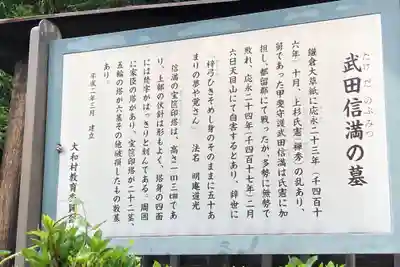 武田信満の墓
たけだ のぶみつ
鎌倉大草紙に応永二十三年（一千四百十
六年）十月、上杉氏憲（禅秀）の乱あり、
舅であった甲斐守護武田信満は氏憲に加
担し、都留郡にて戦ったが、多勢に無勢で
敗れ、応永二十四年（千四百十七年）二月
六日天目山にて自害するとあり、辞世に
「梓弓ひきそめし身のそのままに五十あ
まりの夢や覚さん」 法名 明庵道光
信満の宝篋印塔は、高さ一四三㎝であ
り、上部の伏針は形もよく、塔身の四面
には梵字がはっきりと刻んである。周囲
に家臣の塔があり、宝篋印塔が二十二基、
五輪の塔が六基その他破損したもの数基
あり。
平成二年三月 建立
大和村教育委員会